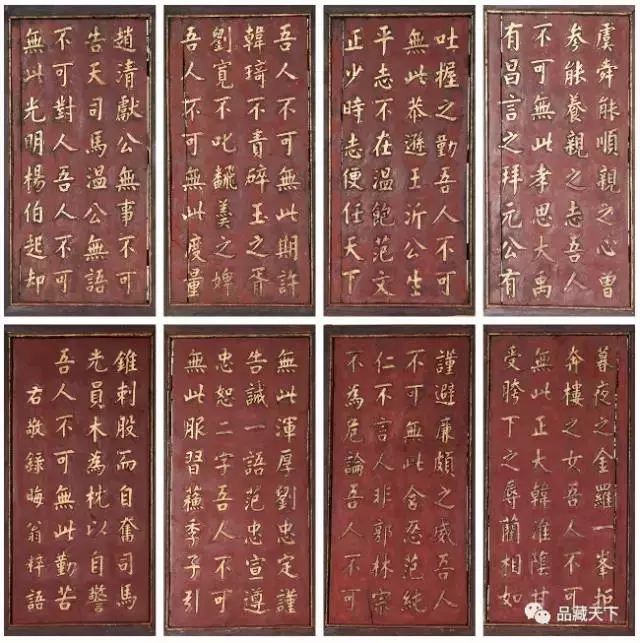 虞舜能順親之心曾
參能養親之志吾人
不可無此孝思大禹
有昌言之拜元公有
吐握之勤吾人不可
無此恭遜王沂公生
平志不在溫飽范文
正少時志便任天下
吾人不可無此期許
韓琦不責碎玉之胥
劉寬不叱翻羹之婢
吾人不可無此度量
趙清獻公無事不可
告天司馬溫公無語
不可對人吾人不可
無此光明楊伯起却
暮夜之金羅一峯拒
奔樓之女吾人不可
無此正大韓淮陰甘
受胯下之辱藺相如
謹避廉頗之威吾人
不可無此含忍范純
仁不言人非郭林宗
不為危論吾人不可
無此渾厚劉忠定謹
告誡一語范忠宣遵
忠恕二字吾人不可
無此服習蘇季子引
錐刺股而自奮司馬
光員木為枕以自警
吾人不可無此勤苦
右敬錄晦翁梓語
品藏天下